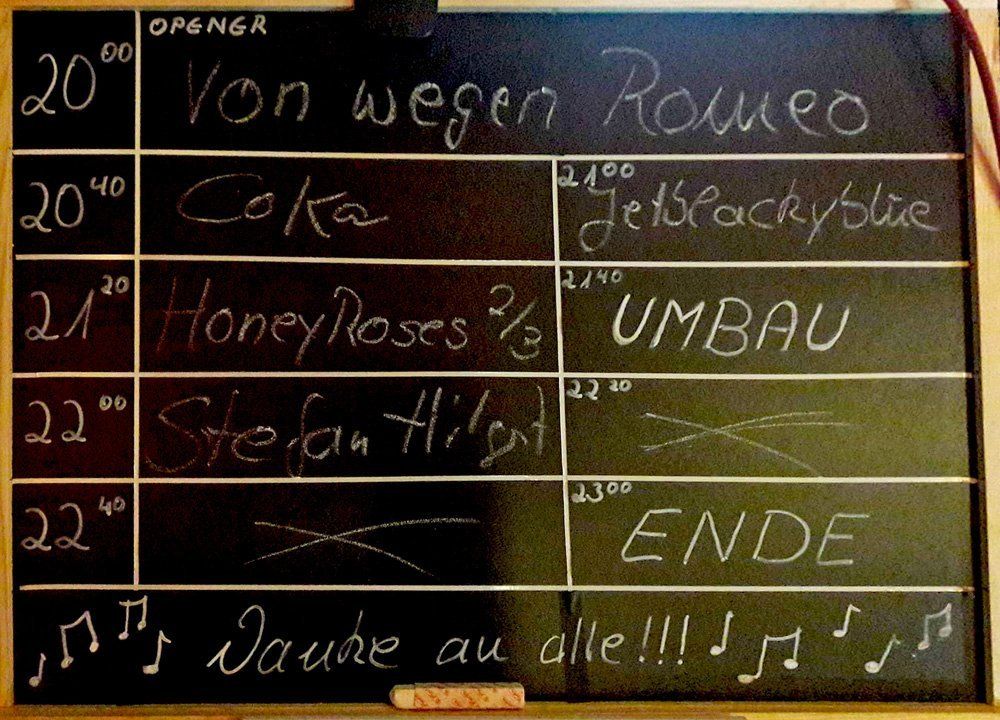 OPENER
20 00 Von wegen Romeo
20 40 Coka
21 00 Jetblackyblue
21 20 HoneyRoses 2/3
21 40 UMBAU
22 00 Stefan
22 20
22 40
23 00 ENDE
Danke an alle!!!